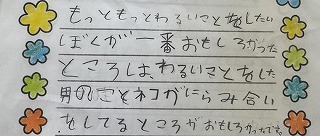 もっともっとわるいことをしたい
ぼくが一番おもしろかった
ところはわるいことをした
男のことネコがにらみ合い
をしてるところがおもしろかったです。